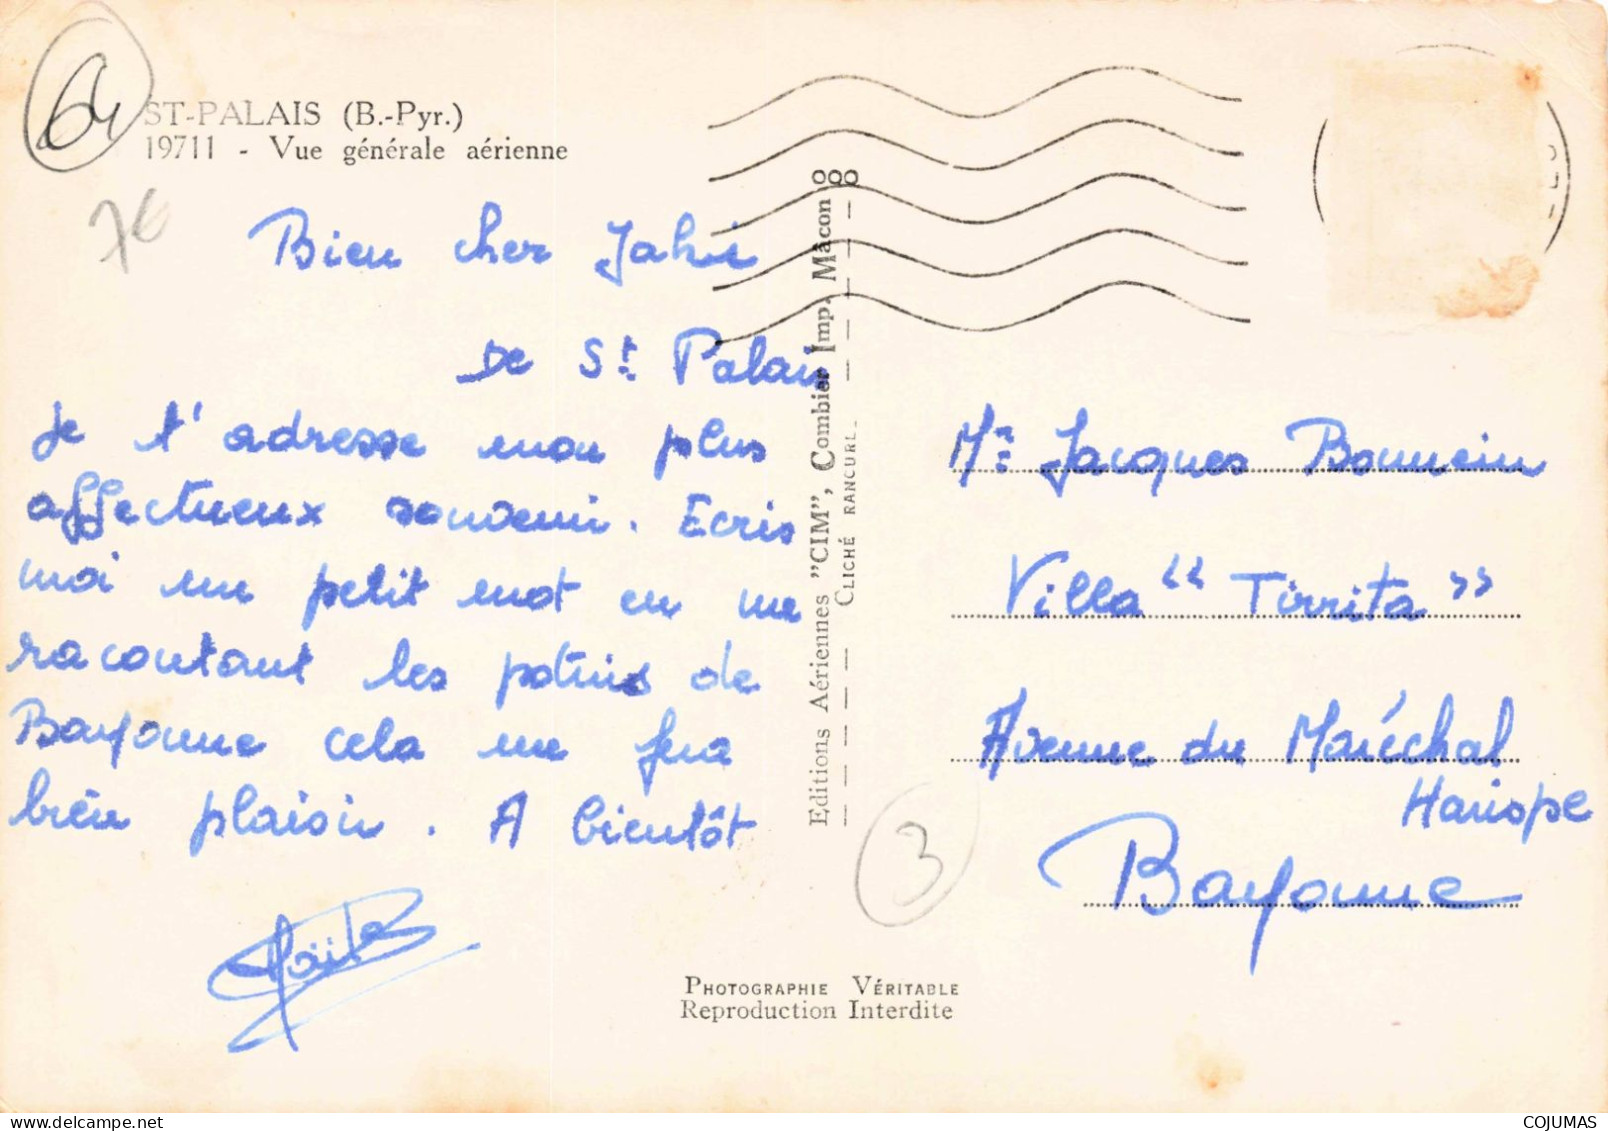 64
ST-PALAIS (B.-Pyr.)
19711 - Vue générale aérienne
7€
Bien cher
De St. Palais
je t'adresse mon plus
affectueux souvenir. Ecris
moi un petit mot en me
racontant les potins de
Bayonne cela me fera
bien plaisir. A bientôt
Editions Aériennes "CIM", Combier Imp. Mâcon
CLICHÉ RANCUREL
Mr. Jacques
Villa "Tirrita"
Avenue du Maréchal
Harispe
Bayonne
3
PHOTOGRAPHIE VÉRITABLE
Reproduction Interdite
COJUMAS